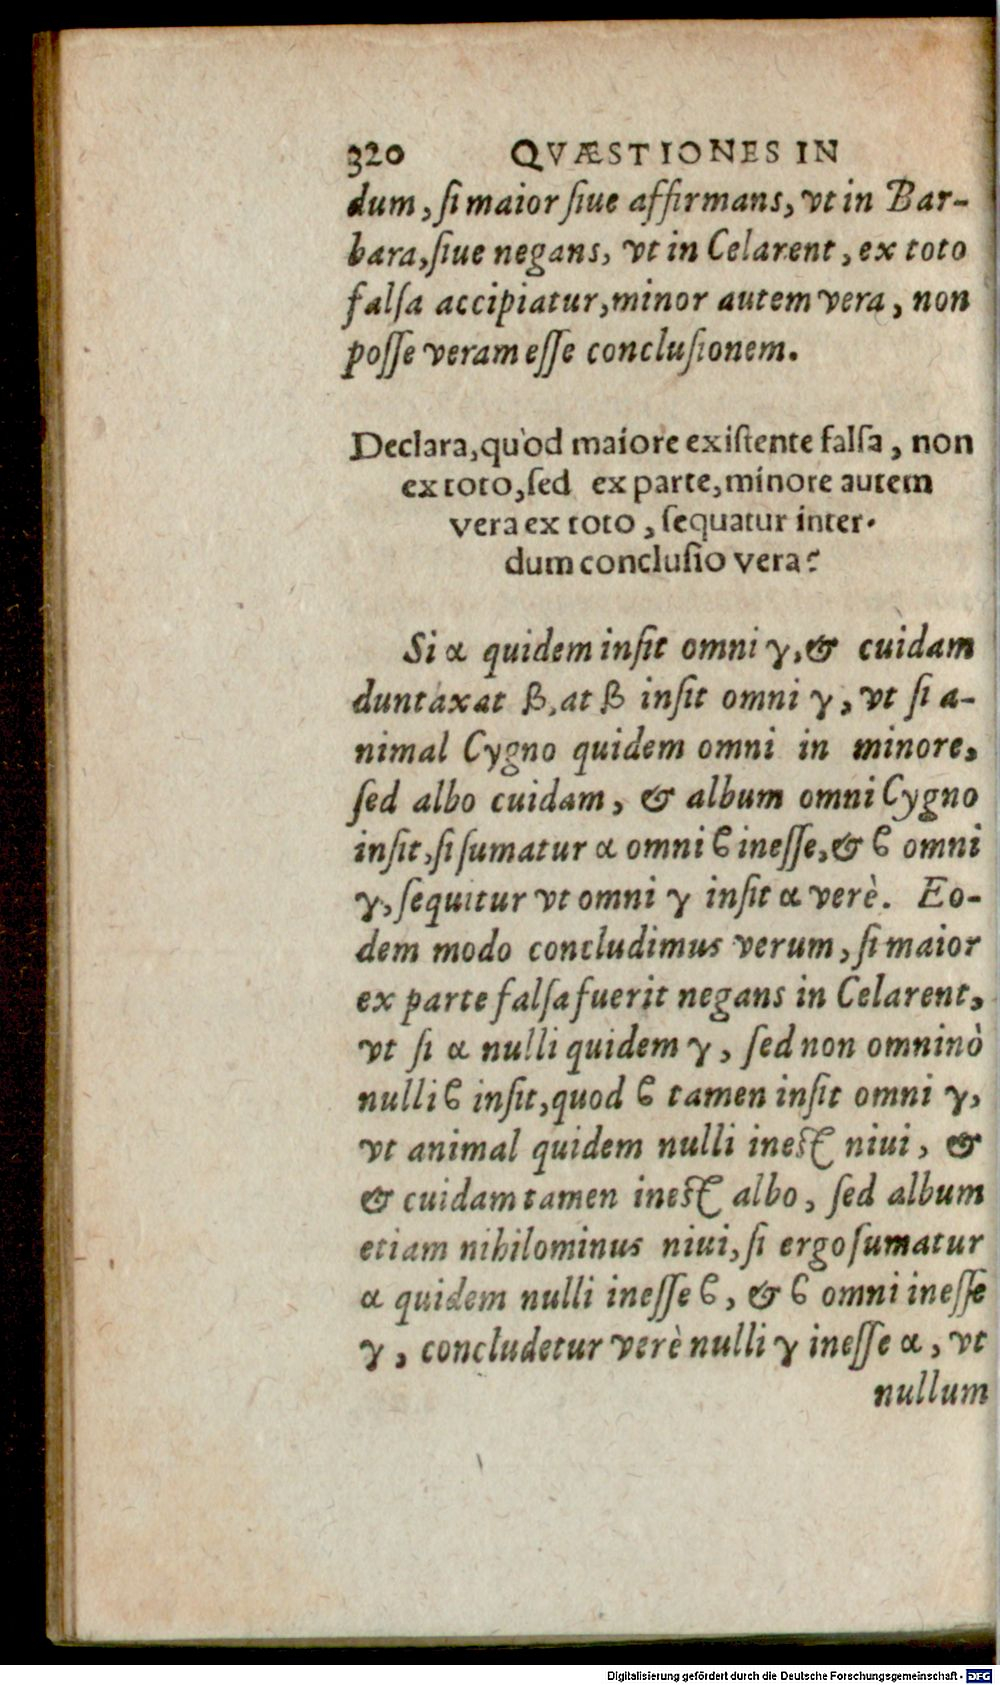 320 QVÆSTIONES IN
dum, ſi maior ſiue affirmans, vt in Bar-
bara, ſiue negans, vt in Celarent, ex toto
falſa accipiatur, minor autem vera, non
poſſe veram eſſe concluſionem.
Declara, quòd maiore exiſtente falſa, non
ex toto, ſed ex parte, minore autem
vera ex toto, ſequatur inter-
dum concluſio vera?
Si α quidem inſit omni γ, & cuidam
duntaxat β, at β inſit omni γ, vt ſi a-
nimal Cygno quidem omni in minore,
ſed albo cuidam, & album omni Cygno
inſit, ſi ſumatur α omni ϐ ineſſe, & ϐ omni
γ, ſequitur vt omni γ inſit α verè. Eo-
dem modo concludimus verum, ſi maior
ex parte falſa fuerit negans in Celarent,
vt ſi α nulli quidem γ, ſed non omninò
nulli ϐ inſit, quod ϐ tamen inſit omni γ,
vt animal quidem nulli ineſt niui, &
& cuidam tamen ineſt albo, ſed album
etiam nihilominus niui, ſi ergo ſumatur
α quidem nulli ineſſe ϐ, & ϐ omni ineſſe
γ, concludetur verè nulli γ ineſſe α, vt
nullum
Digitalisierung gefördert durch die Deutsche Forschungsgemeinschaft - DFG